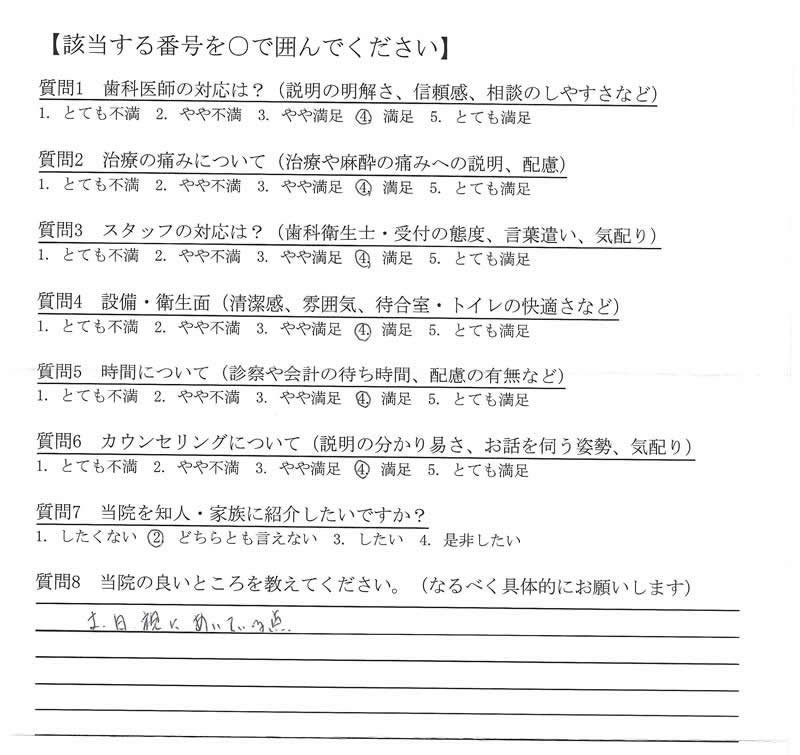 【該当する番号を〇で囲んでください】
質問1 歯科医師の対応は？（説明の明解さ、信頼感、相談のしやすさなど）
1. とても不満 2. やや不満 3. やや満足 ④ 満足 5. とても満足
質問2 治療の痛みについて（治療や麻酔の痛みへの説明、配慮）
1. とても不満 2. やや不満 3. やや満足 ④ 満足 5. とても満足
質問3 スタッフの対応は？（歯科衛生士・受付の態度、言葉遣い、気配り）
1. とても不満 2. やや不満 3. やや満足 ④ 満足 5. とても満足
質問4 設備・衛生面（清潔感、雰囲気、待合室・トイレの快適さなど）
1. とても不満 2. やや不満 3. やや満足 ④ 満足 5. とても満足
質問5 時間について（診察や会計の待ち時間、配慮の有無など）
1. とても不満 2. やや不満 3. やや満足 ④ 満足 5. とても満足
質問6 カウンセリングについて（説明の分かり易さ、お話を伺う姿勢、気配り）
1. とても不満 2. やや不満 3. やや満足 ④ 満足 5. とても満足
質問7 当院を知人・家族に紹介したいですか？
1. したくない ② どちらとも言えない 3. したい 4. 是非したい
質問8 当院の良いところを教えてください。（なるべく具体的にお願いします）
土・日・祝にあいている点.